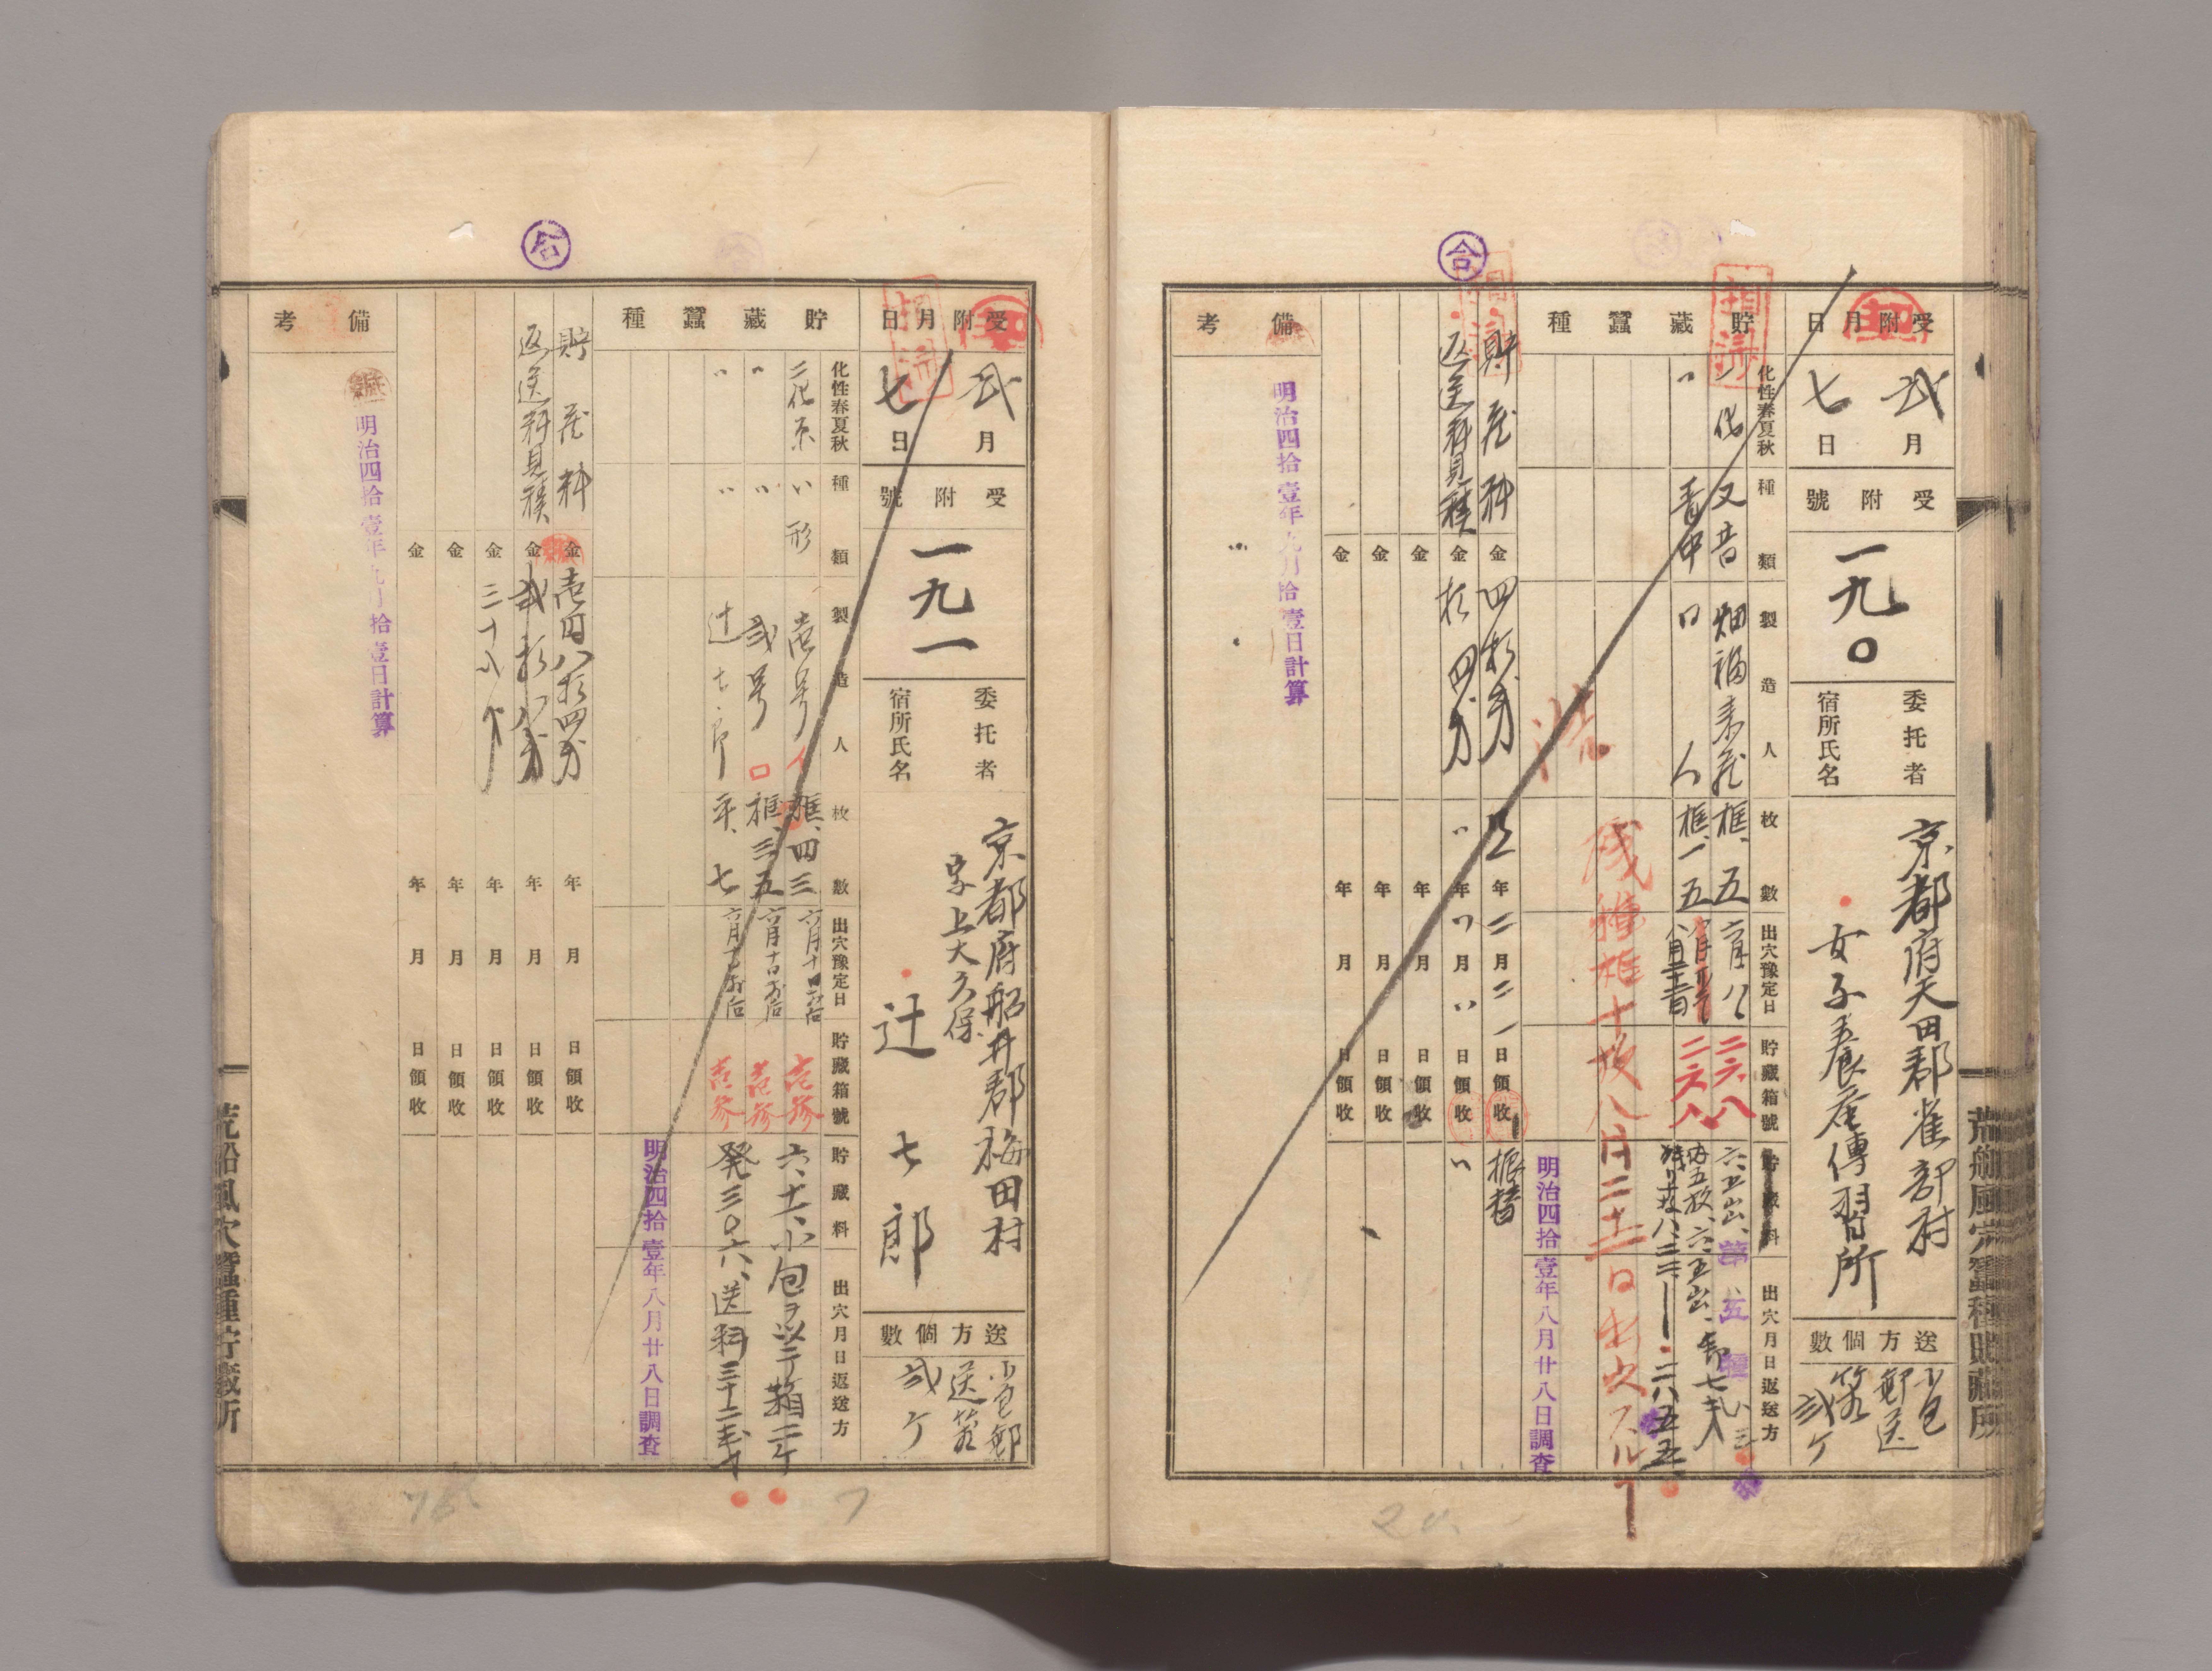 合
受附月日
弐月
七日
受附號
一九〇
委托者
宿所氏名
京都府天田郡雀部村
女子養蚕傳習所
送方個數
小包
郵送
箱
弐ケ
貯藏蠶種
化性春夏秋
種類
製造人
枚數
出穴豫定日
貯藏箱號
貯藏料
出穴月日返送方
一化
又昔
框、五
二六八
〃
青中
框、一五
二六八
済
残種框十枚八月二十二日出穴スル
明治四拾壹年八月廿八日調査
貯藏料
金
四拾銭
年二月二一日領收
振替
返送料見積
金
拾四銭
〃年〃月〃日領收
〃
金
年
月
日領收
金
年
月
日領收
金
年
月
日領收
備考
明治四拾壹年九月拾壹日計算
荒船風穴蠶種貯藏所
合
受附月日
弐月
七日
受附號
一九一
委托者
宿所氏名
京都府船井郡梅田村
字上大久保
辻七郎
送方個數
小包郵
送箱
弐ケ
貯藏蠶種
化性春夏秋
種類
製造人
枚數
出穴豫定日
貯藏箱號
貯藏料
出穴月日返送方
二化
〃形
壱号
イ
框、四三
壱参
六、十一、小包ヲ以テ箱二ケ
〃
〃
弐号
ロ
框、三五
壱参
発三〇六、送料三十二銭
〃
〃
辻七郎
平、七
壱参
明治四拾壹年八月廿八日調査
貯藏料
金
壱円八拾四銭
年
月
日領收
返送料見積
金
弐拾八銭
年
月
日領收
金
年
月
日領收
金
年
月
日領收
金
年
月
日領收
備考
明治四拾壹年九月拾壹日計算
荒船風穴蠶種貯藏所